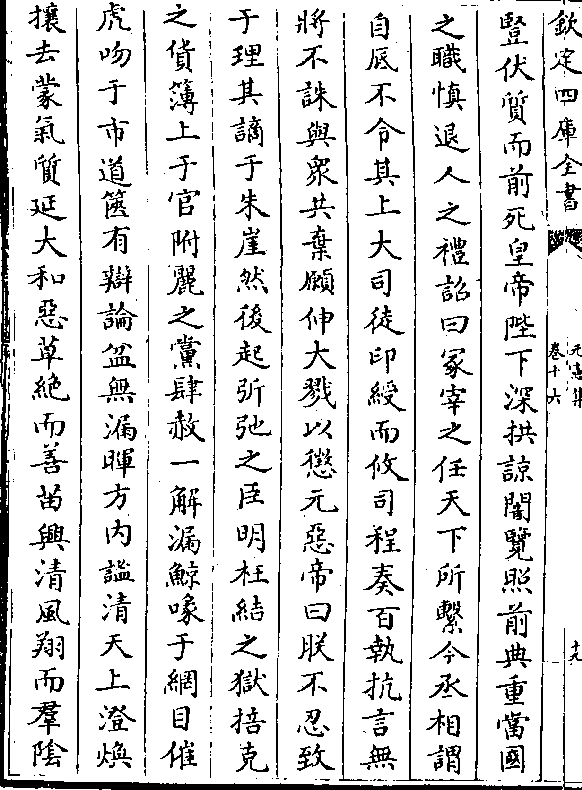 欽定四庫全書
元憲集
卷十六
十九
豎伏質而前死皇帝陛下深拱諒闇覽照前典重當國
之職慎退人之禮詔曰冢宰之任天下所繫今丞相謂
自底不令其上大司徒印綬而攸司程奏百執抗言無
將不誅與衆共棄願伸大戮以懲元惡帝曰朕不忍致
于理其謫于朱崖然後起斥弛之臣明枉結之獄掊克
之貨簿上于官附麗之黨肆赦一解漏鯨喙于網目催
虎吻于市道篋有辯論盆無漏暉方内謐清天上澄煥
攘去蒙氣質延大和惡草絶而善苗興清風翔而羣陰